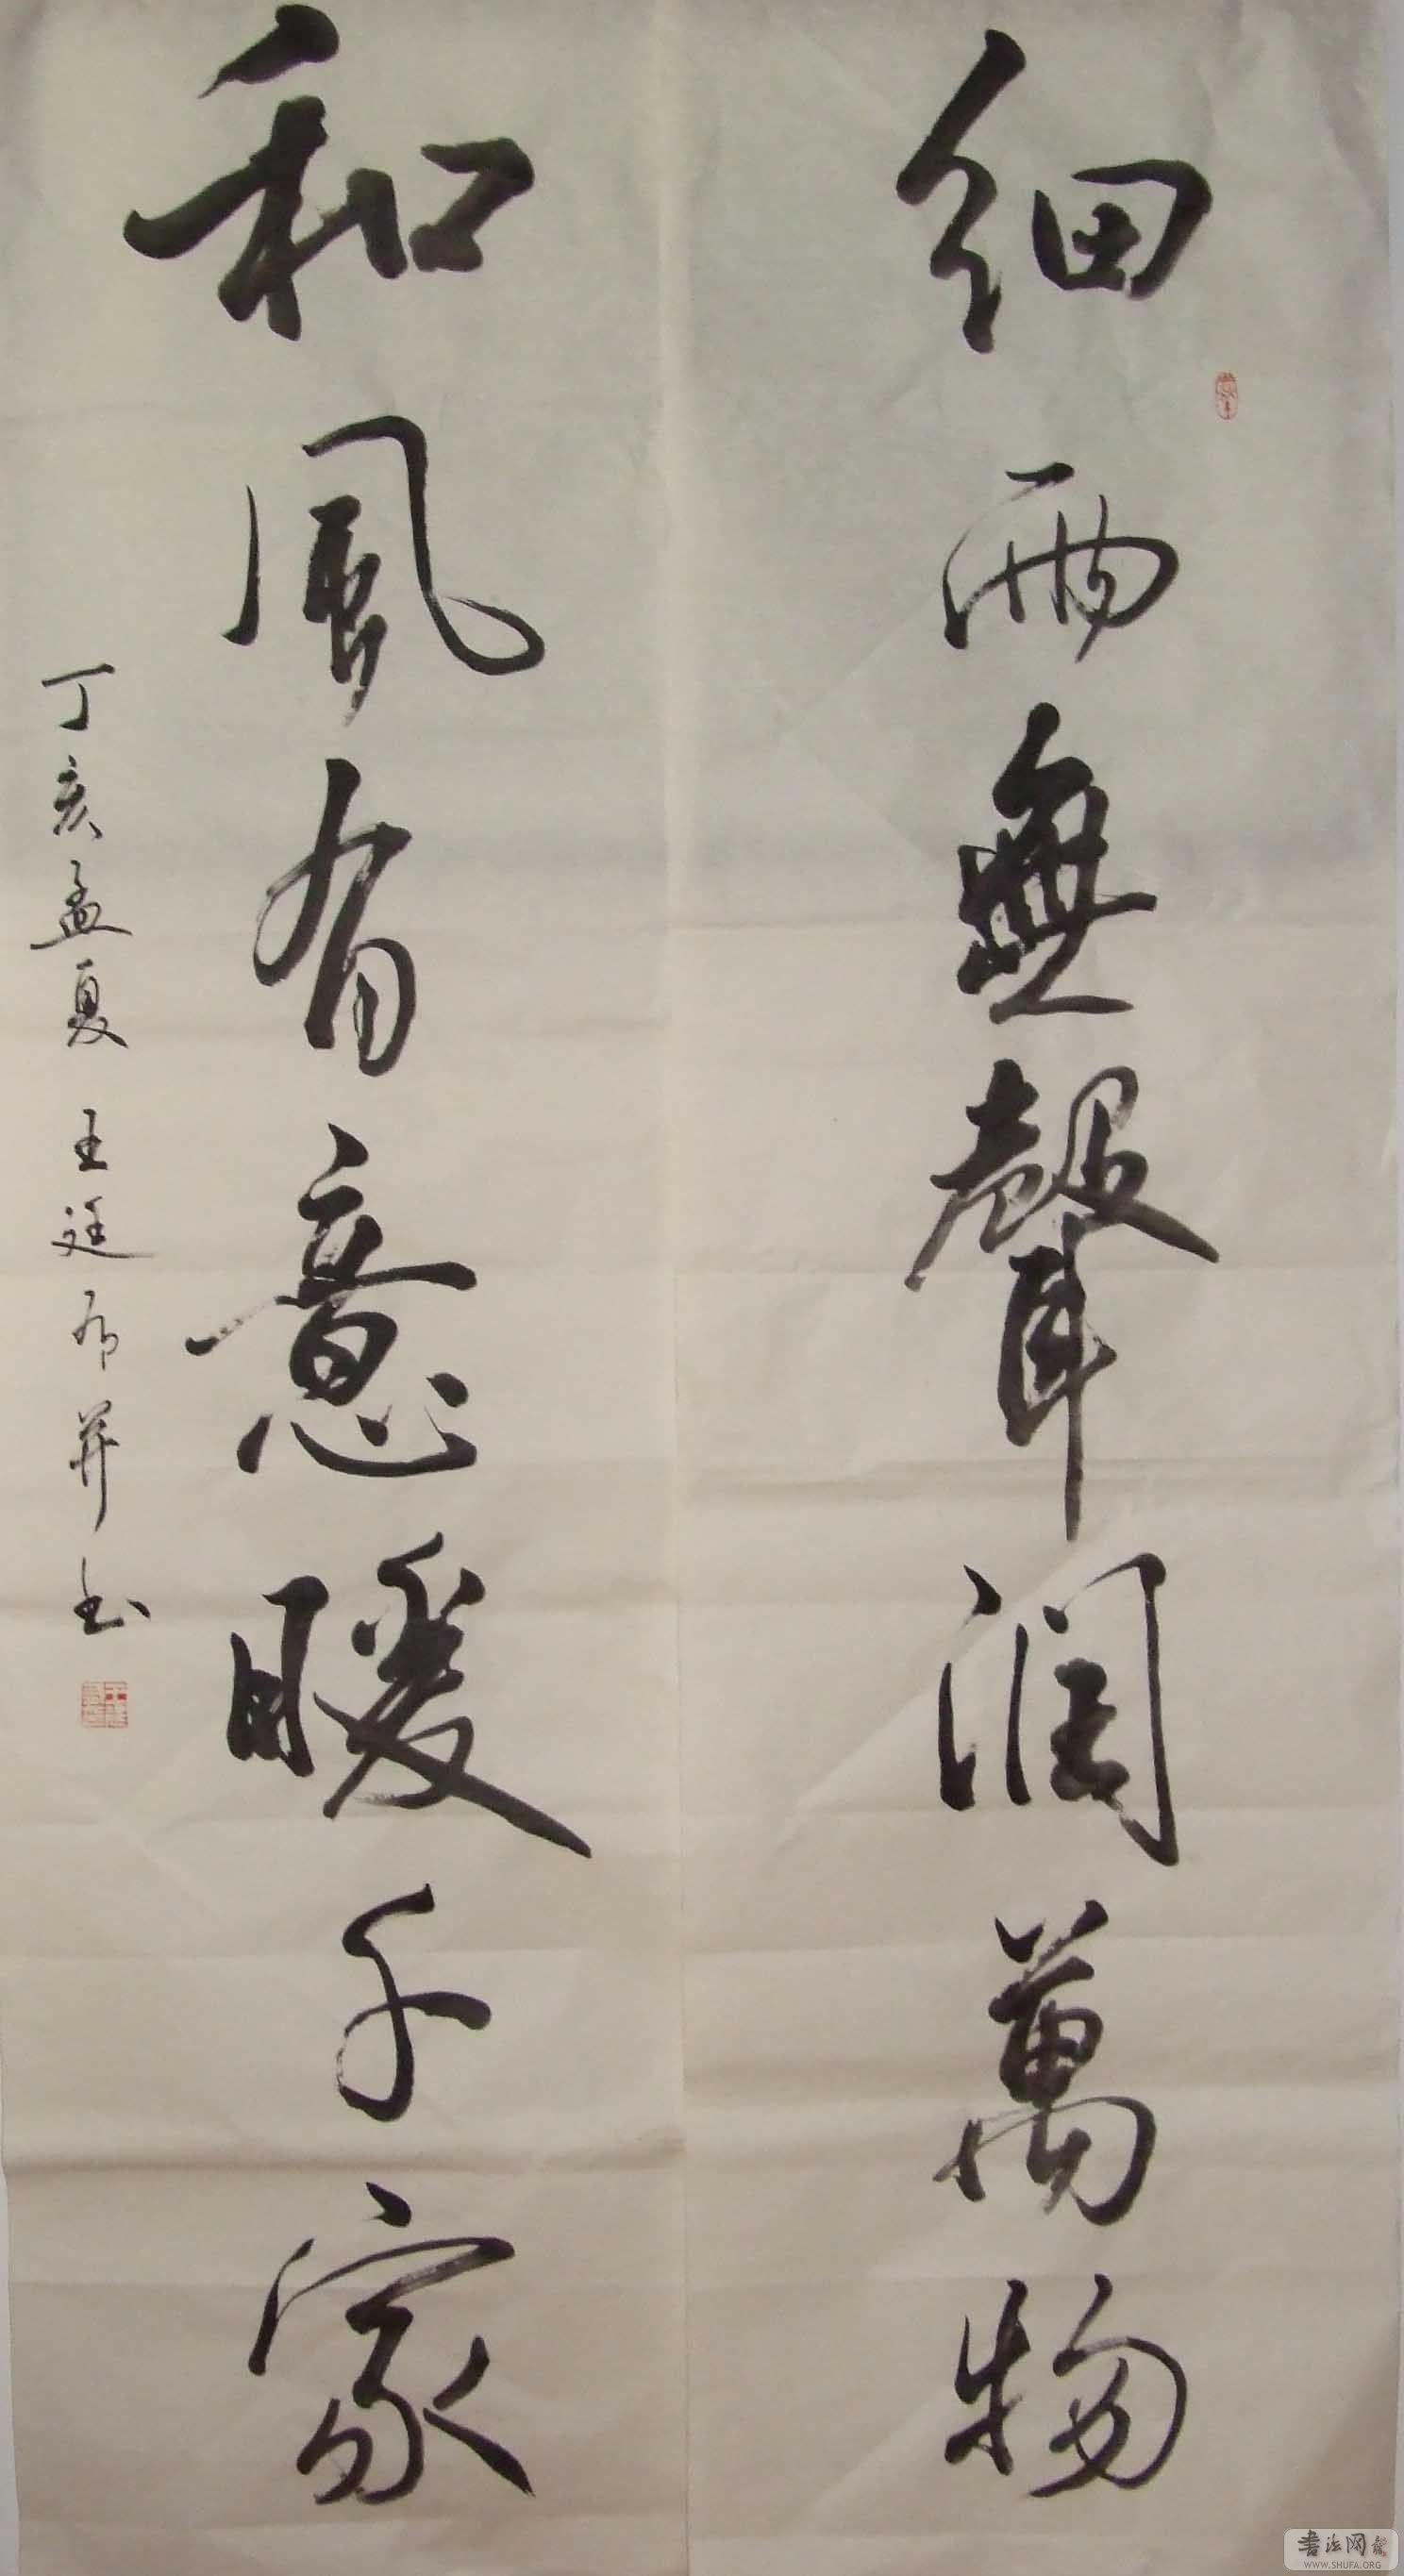 細雨無聲潤萬物
和風有意暖千家
丁亥孟夏 王廷 并书
书法网
WWW.SHUFA.ORG